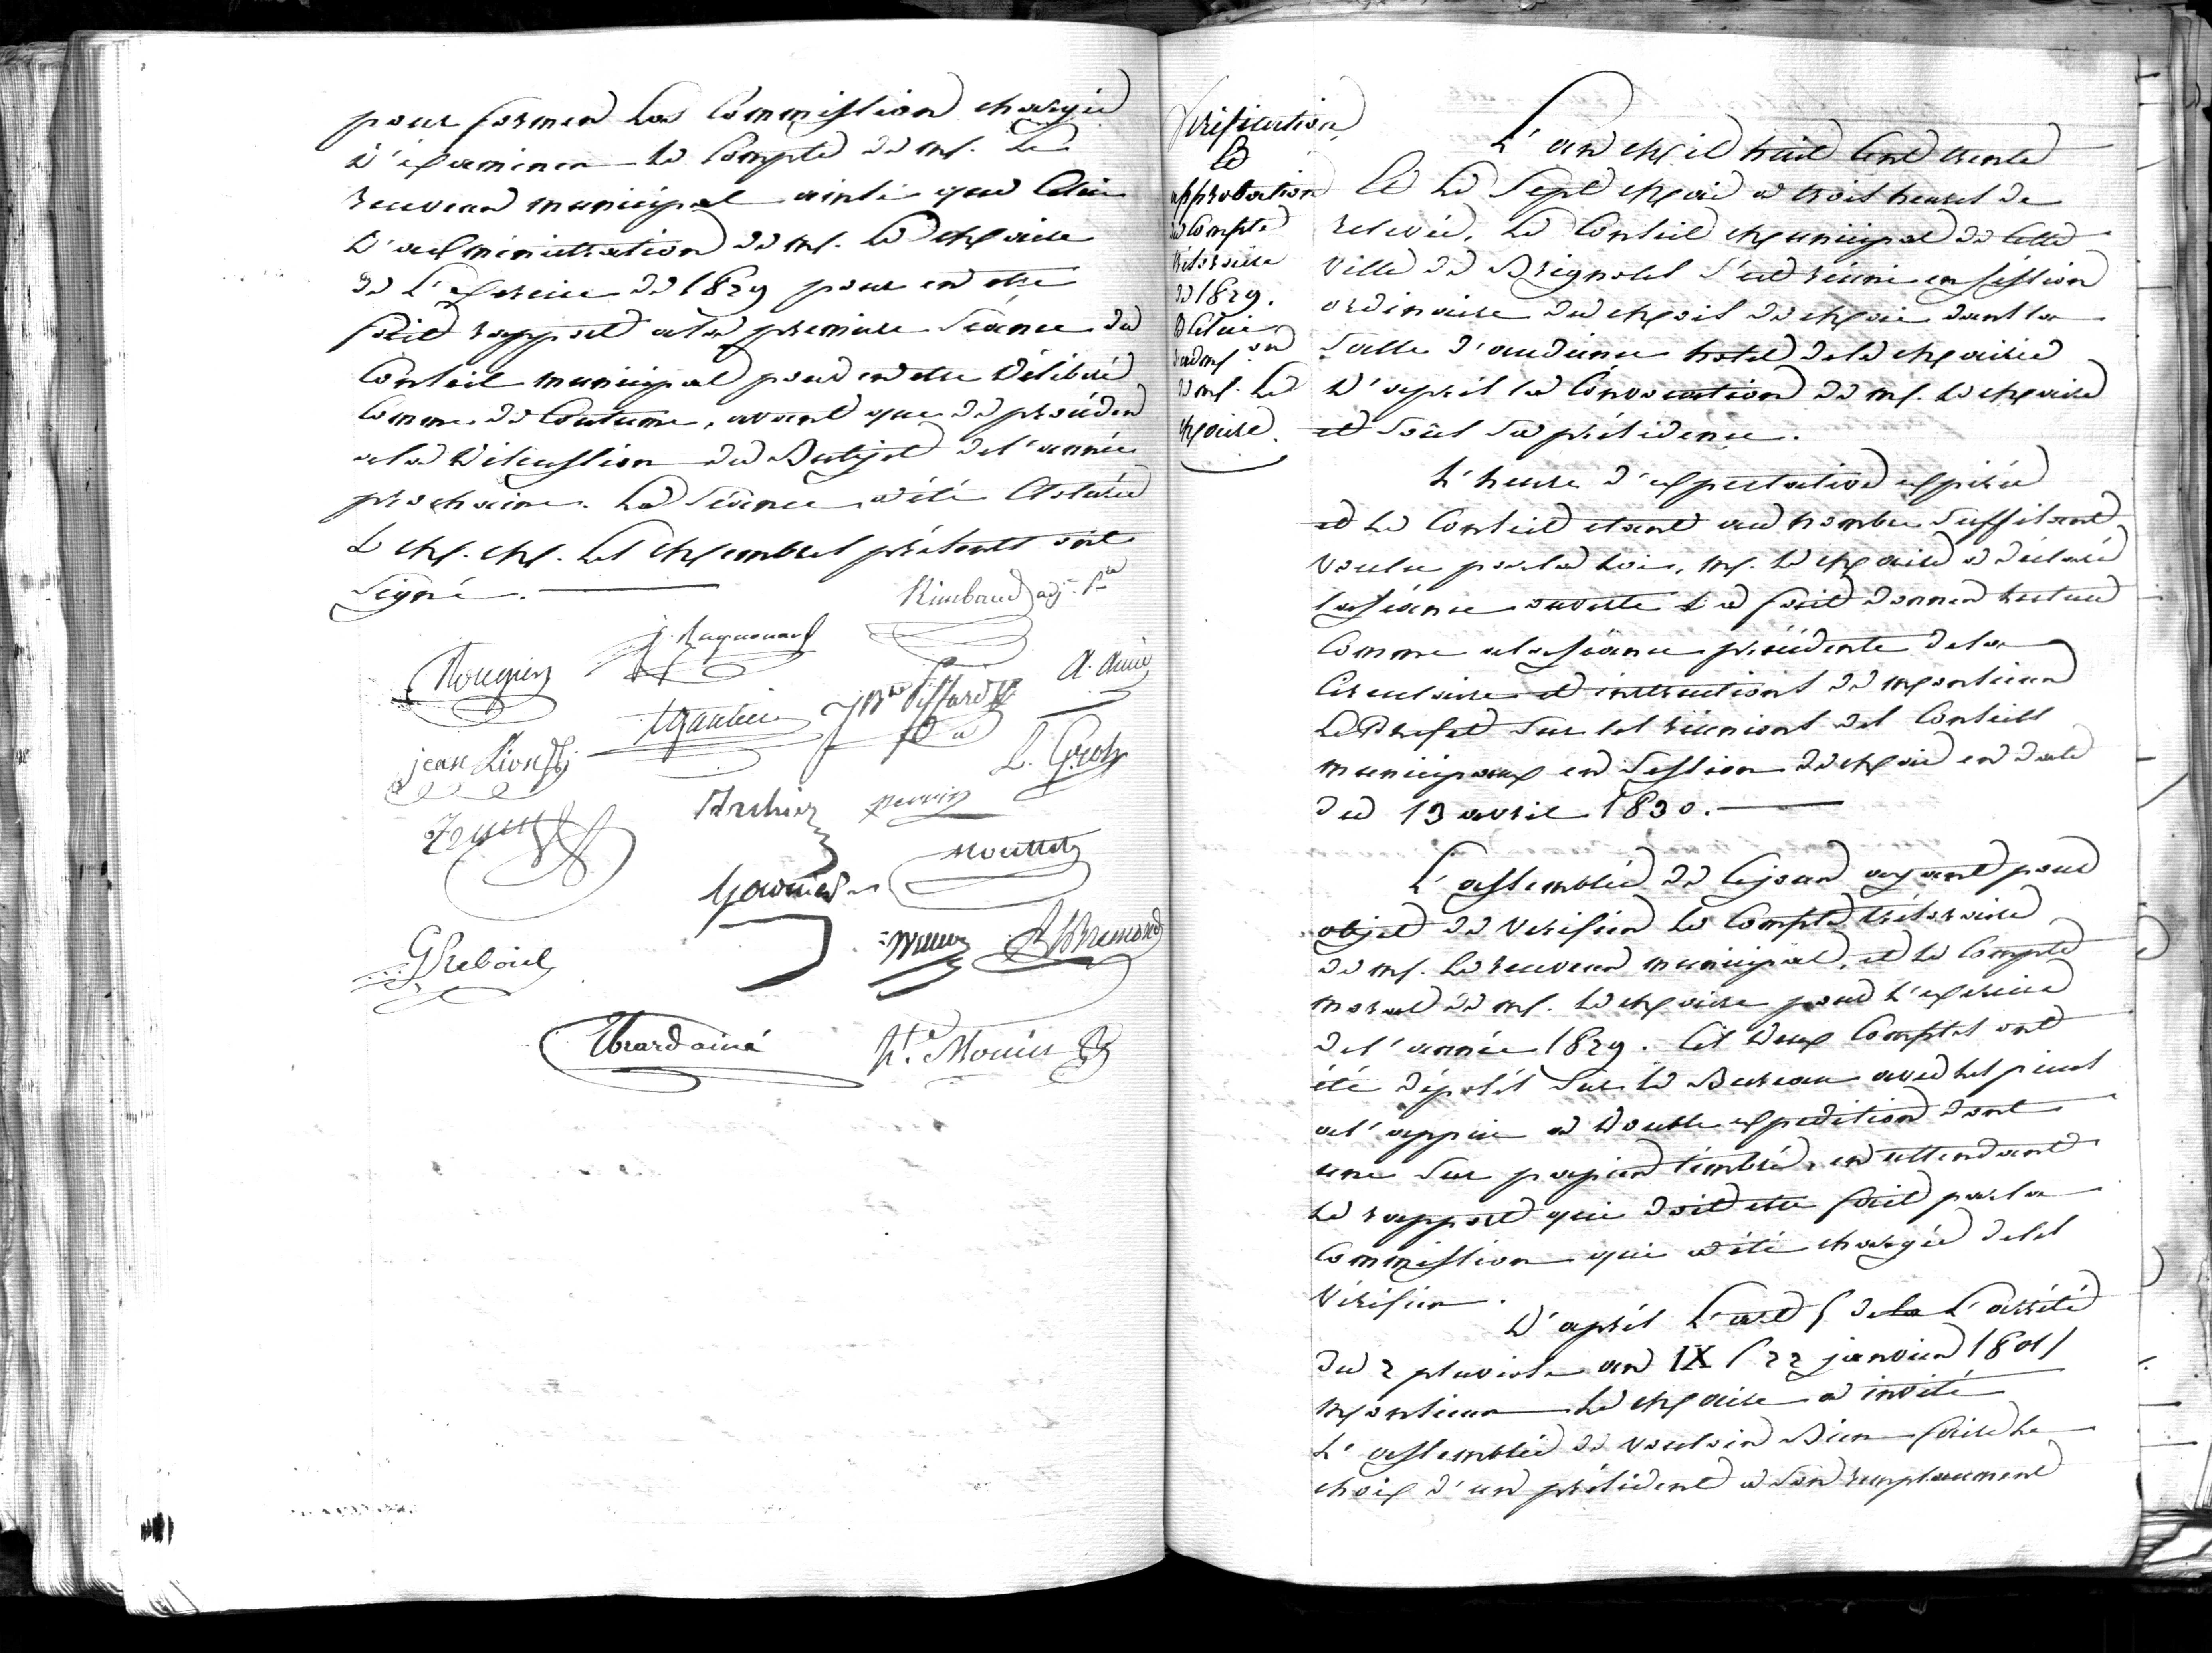 pour former la Commission chargée
d'examiner le Compte de mr. le
receveur municipal ainsi que Celui
d'administration de mr. le Maire
de L'exercice de 1829 pour en etre
fait rapport a la premiere séance du
Conseil municipal pour en etre délibéré
Comme de Coutume, avant que de procéder
a la discussion du Budjet de l'année
prochaine. La séance a été Cloturée
& MM. les Membres présents ont
Signé.
Rimbaud adj.
J. Raynouard
Nougier
A. Amic
tgautier
Jn Bte Piffard
jean Lion
L. Gros
Archier
perrin
Mouttet
Garnier
GReboul
Bremond
Ebrard ainé
hte. Mouiis
Verification
Et
approbation
du Compte
trésoraire
de 1829.
& Celui
d'adm.on
de mr. le
Maire.
L'an Mil huit Cent trente
Et le Sept Mai a trois heures de
relevée, le Conseil Municipal de Cette
Ville de Brignoles s'est réuni en session
ordinaire du Mois de Mai dans la
Salle d'audience hotel de la Mairie
d'après la Convocation de mr. le Maire
et sous sa présidence.
L'heure d'expectative expirée
et le Conseil etant au nombre suffisant
voulu par la Loi, mr. le Maire a déclaré
la séance ouverte & a fait donner lecture
Comme a la séance précédente de la
Circulaire et instructions de Monsieur
Le Prefet sur les réunions des Conseils
municipaux en session de Mai en date
du 13 avril 1830.
L'assemblée de Ce jour ayant pour
objet de Verifier le Compte trésoraire
de mr. le receveur municipal, et le Compte
moral de mr. le Maire pour l'exercice
de l'année 1829. Ces deux Comptes ont
été déposés sur le Bureau avec les pieces
a l'appui a double expedition dont
une sur papier timbré, en attendant
le rapport qui doit etre fait par la
Commission qui a été chargée de les
Vérifier.
D'après L'art de la L'arrété
du 2 pluviose an IX (22 janvier 1801)
Monsieur le Maire a invité
L'assemblée de vouloir Bien faire le
choix d'un président a son remplacement